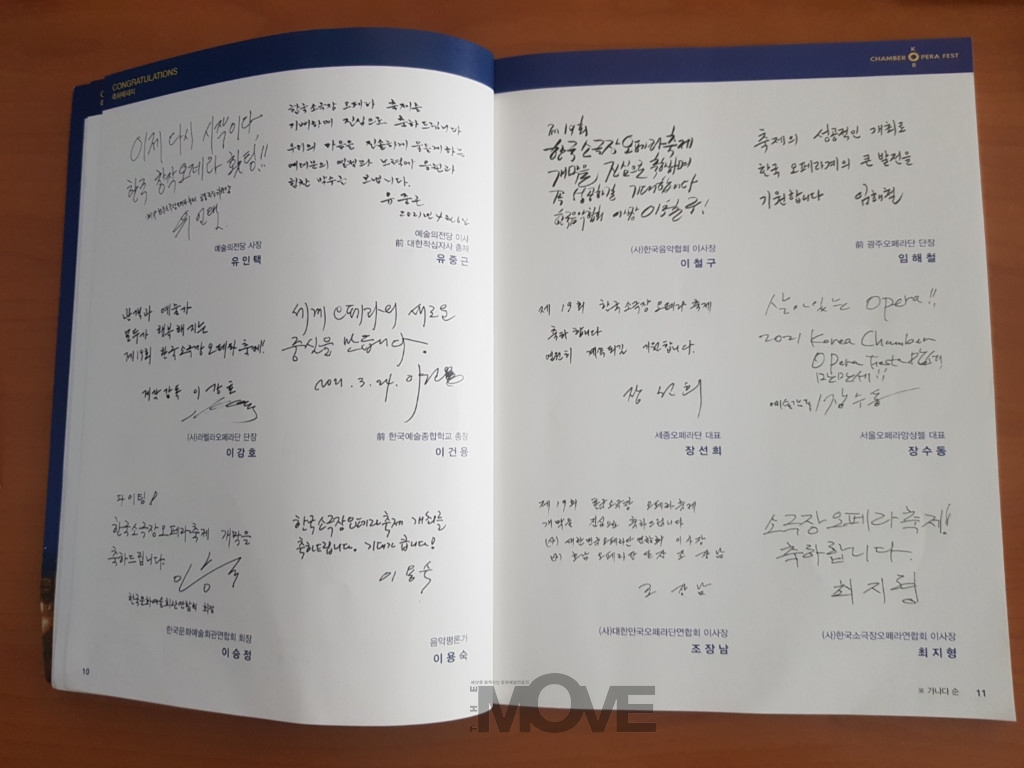 CONGRATULATIONS
축하메세지
이제 다시 시작이다,
한국 창작오페라 화팅!!
유인택
예술의전당 사장
유 인 택
한국소극장 오페라 축제를
기뻐하며 진심으로 축하드립니다
우리의 마음은
힘찬 박수를 보냅니다.
유중근
2021년 4월 6일
예술의전당 이사
前 대한적십자사 총재
유 중 근
관객과 예술가
모두가 행복해지는
제19회 한국소극장오페라축제!
예산감독 이강호
(사)라벨라오페라단 단장
이 강 호
세계 오페라의 새로운
중심을 만듭니다.
2021. 3. 24.
前 한국예술종합학교 총장
이 건 용
파이팅!
한국소극장오페라축제 개막을
축하드립니다.
한국문화예술회관연합회 회장
한국문화예술회관연합회 회장
이 승 정
한국소극장오페라축제 개최를
축하드립니다. 기대가 큽니다!
이용숙
음악평론가
이 용 숙
10
CHAMBER OPERA FEST
KOREA
제19회
한국소극장오페라축제
개막을 진심으로 축하하며
꼭 성공하길 기대합니다
한국음악협회 이사장 이철구!
(사)한국음악협회 이사장
이 철 구
축제의 성공적인 개최로
한국 오페라계의 큰 발전을
기원합니다 임해철
前 광주오페라단 단장
임 해 철
제 19회 한국소극장오페라 축제
축하 합니다
영원히 계속되길 기원합니다.
장선희
세종오페라단 대표
장 선 희
살아있는 Opera!!
2021 Korea Chamber
Opera Festa 만세
만만세!!
예술감독 장수동
서울오페라앙상블 대표
장 수 동
제 19회 한국소극장 오페라축제
개막을 진심으로 축하드립니다
(사) 대한민국오페라단연합회 이사장
호남 오페라단 단장 조장남
조 장남
(사)대한민국오페라단연합회 이사장
조 장 남
소극장오페라축제!
축하합니다.
최지형
(사)한국소극장오페라연합회 이사장
최 지 형
※ 가나다 순 11
THE MOVE